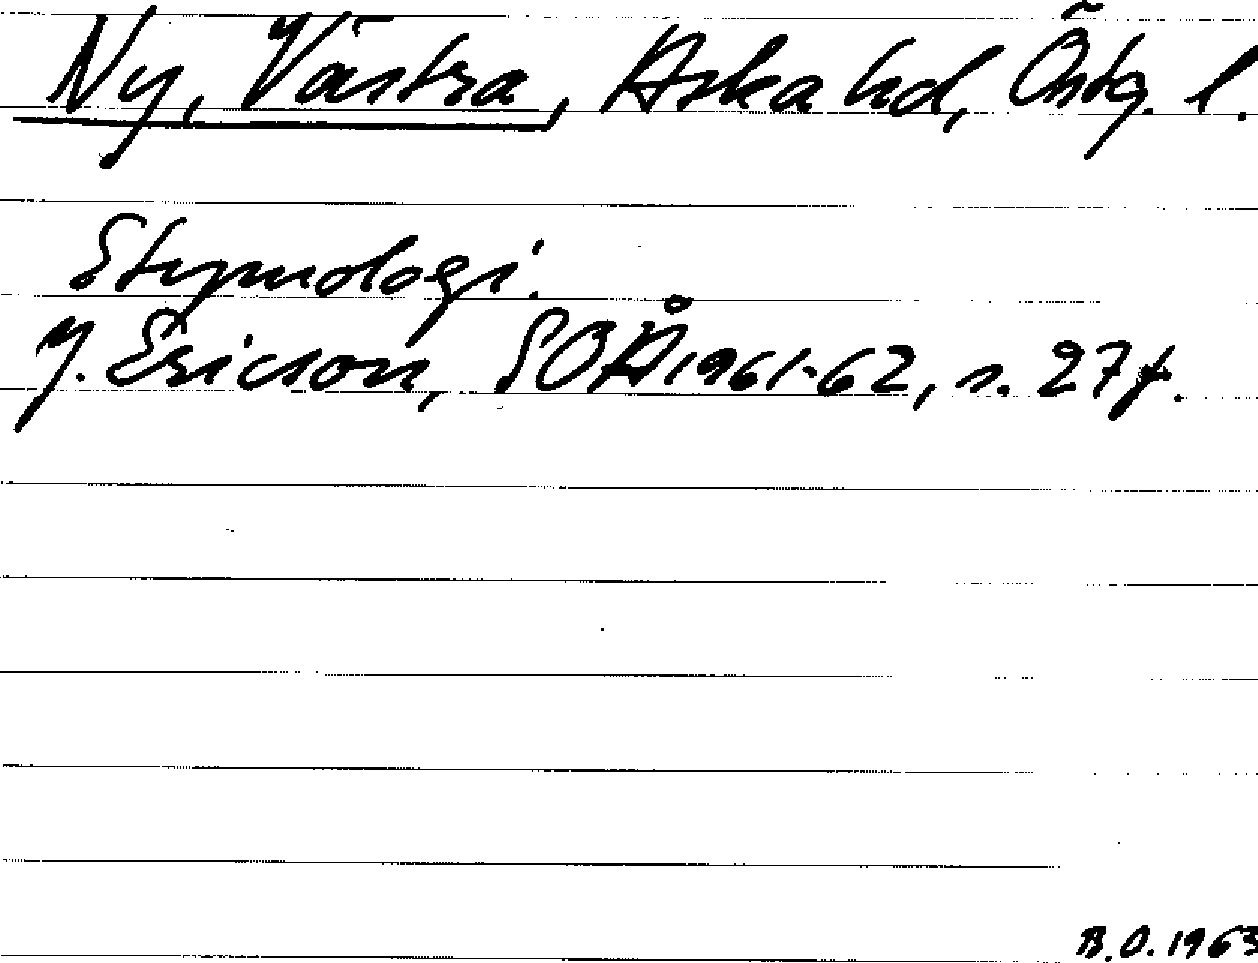 Ny, Västra, Aska hd, Östg. l.
Etymologi.
J. Ericson, SOÅ 1961-62, s. 27 f.
B.O. 1963